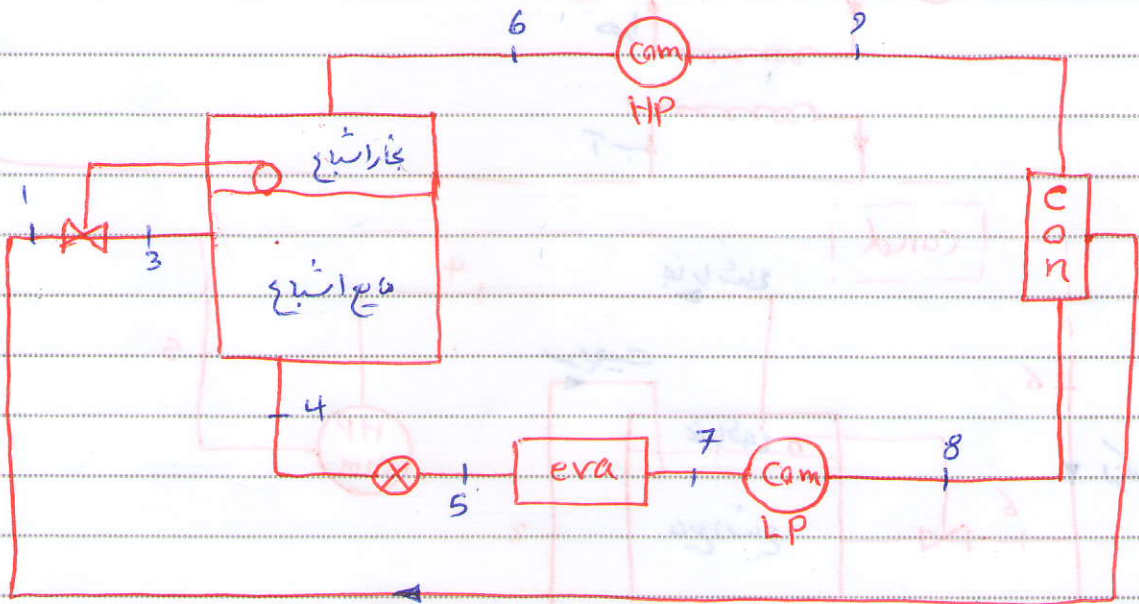 6
9
com
HP
بخار اشباع
1
3
C
o
n
مایع اشباع
4
5
eva
7
Com
LP
8